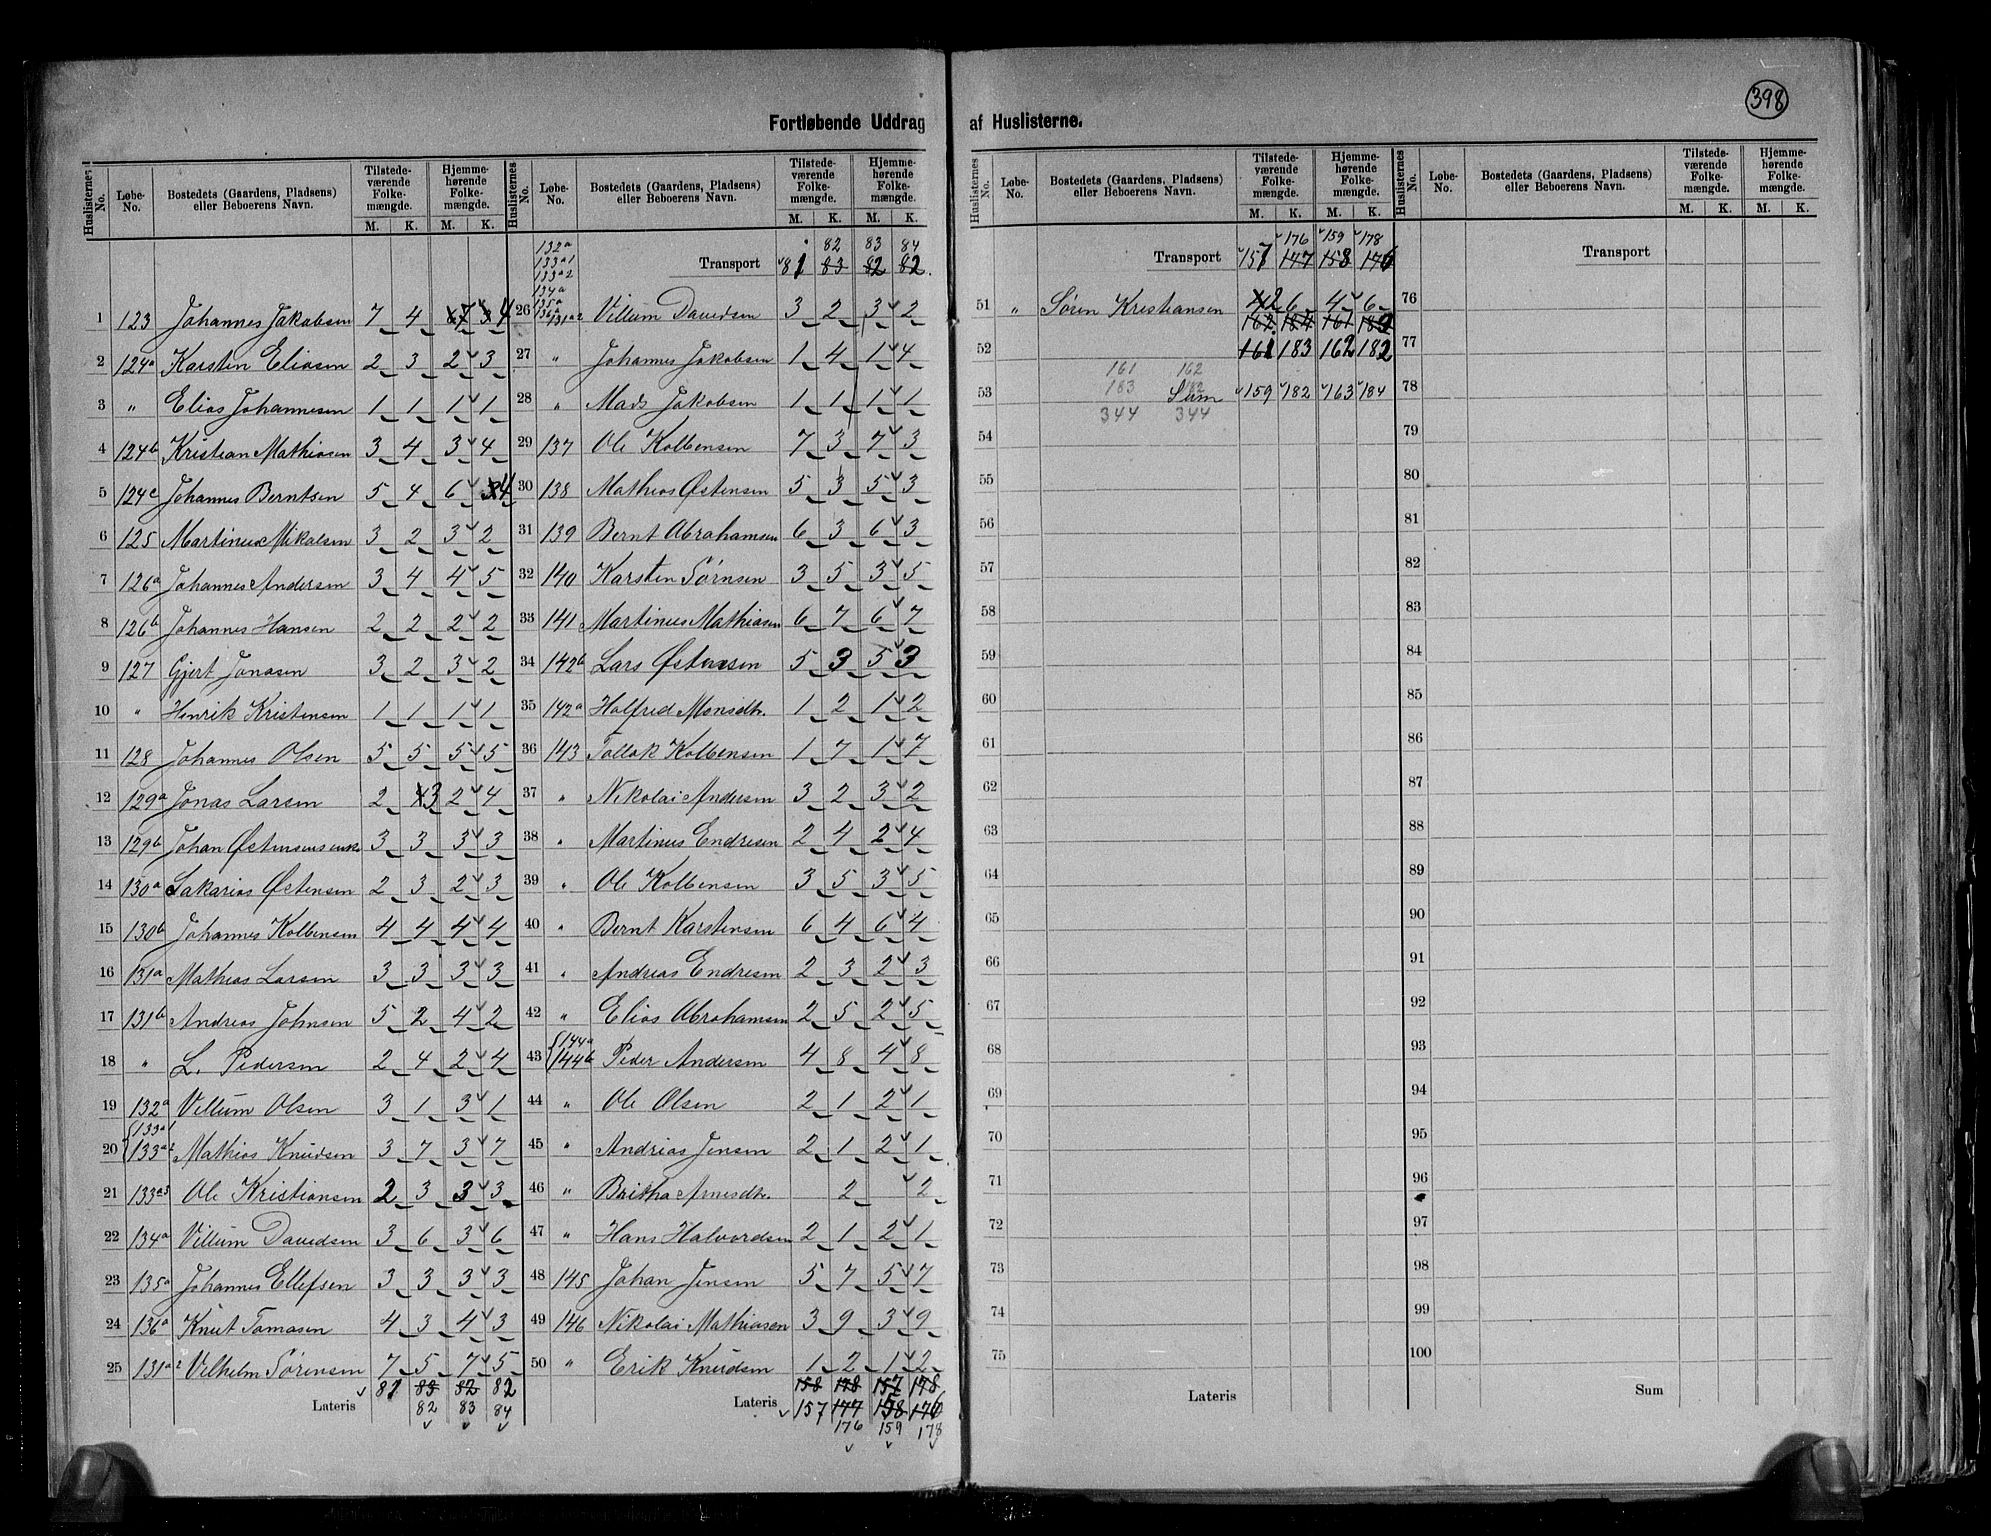 398
Fortløbende Uddrag af Huslisterne.
Huslisternes No. Løbe-No. Bostedets (Gaardens, Pladsens) eller Beboerens Navn. Tilstedeværende Folkemængde. M. K. Hjemmehørende Folkemængde. M. K.
1 123 Johannes Jakobsen 7 4 7 4
2 124a Karsten Eliasen 2 3 2 3
3 " Elias Johannesen 1 1 1 1
4 124b Kristian Mathiasen 3 4 3 4
5 124c Johannes Berntsen 5 4 6 4
6 125 Martinus Mikalsen 3 2 3 2
7 126a Johannes Andersen 3 4 4 5
8 126b Johannes Hansen 2 2 2 2
9 127 Gjert Jonasen 3 2 3 2
10 " Henrik Kristensen 1 1 1 1
11 128 Johannes Olsen 5 5 5 5
12 129a Jonas Larsen 2 3 2 4
13 129b Johan Østensens enke 3 3 3 3
14 130a Sakarias Østensen 2 3 2 3
15 130b Johannes Kolbensen 4 4 4 4
16 131a Mathias Larsen 3 3 3 3
17 131b Andreas Johnsen 5 2 4 2
18 " L. Pedersen 2 4 2 4
19 132a Villum Olsen 3 1 3 1
133a1
20 133a2 Mathias Knudsen 3 7 3 7
21 133a3 Ole Kristiansen 2 3 3 3
22 134a Villum Davidsen 3 6 3 6
23 135a Johannes Ellefsen 3 3 3 3
24 136a Knut Tomasen 4 3 4 3
25 131a2 Vilhelm Sörensen 7 5 7 5
Lateris 81 83 82 82
82 83 84
Huslisternes No. Løbe-No. Bostedets (Gaardens, Pladsens) eller Beboerens Navn. Tilstedeværende Folkemængde. M. K. Hjemmehørende Folkemængde. M. K.
132a 82 83 84
133a1 Transport 81 83 82 82.
133a2
134a
135a
136a
26 131a2 Villum Davidsen 3 2 3 2
27 " Johannes Jakobsen 1 4 1 4
28 " Mads Jakobsen 1 1 1 1
29 137 Ole Kolbensen 7 3 7 3
30 138 Mathias Østensen 5 3 5 3
31 139 Bernt Abrahamsen 6 3 6 3
32 140 Karsten Sörnsen 3 5 3 5
33 141 Martinus Mathiasen 6 7 6 7
34 142b Lars Østensen 5 3 5 3
35 142a Halfred Monsdtr. 1 2 1 2
36 143 Tollak Kolbensen 1 7 1 7
37 " Nikolai Andersen 3 2 3 2
38 " Martinus Endresen 2 4 2 4
39 " Ole Kolbensen 3 5 3 5
40 " Bernt Karstensen 6 4 6 4
41 " Andreas Endresen 2 3 2 3
42 " Elias Abrahamsen 2 5 2 5
144a
43 144b Peder Andersen 4 8 4 8
44 " Ole Olsen 2 1 2 1
45 " Andreas Jensen 2 1 2 1
46 " Britha Arnesdtr. 2 2
47 " Hans Halvordsen 2 1 2 1
48 145 Johan Jensen 5 7 5 7
49 146 Nikolai Mathiasen 3 9 3 9
50 " Erik Knudsen 1 2 1 2
158 178 157 178
Lateris 157 177 158 176
176 159 178
Huslisternes No. Løbe-No. Bostedets (Gaardens, Pladsens) eller Beboerens Navn. Tilstedeværende Folkemængde. M. K. Hjemmehørende Folkemængde. M. K.
176 159 178
Transport 157 177 158 176
51 " Sören Kristiansen 2 6 4 6
162 184 161 182
52 161 183 162 182
161 162
183 182
53 Sum 159 182 163 184
344 344
54
55
56
57
58
59
60
61
62
63
64
65
66
67
68
69
70
71
72
73
74
75
Lateris
Huslisternes No. Løbe-No. Bostedets (Gaardens, Pladsens) eller Beboerens Navn. Tilstedeværende Folkemængde. M. K. Hjemmehørende Folkemængde. M. K.
Transport
76
77
78
79
80
81
82
83
84
85
86
87
88
89
90
91
92
93
94
95
96
97
98
99
100
Sum